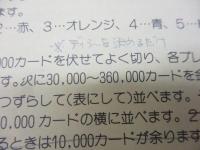 …赤、3…オレンジ、4…青、5…
※ ディーラーを決めるだけ
000カードを伏せてよく切り、各プレ
す。次に30,000〜360,000カードを
つずらして(表にして)並べます。
0,000カードの横に並べます。2
るときは10,000カードが余ります